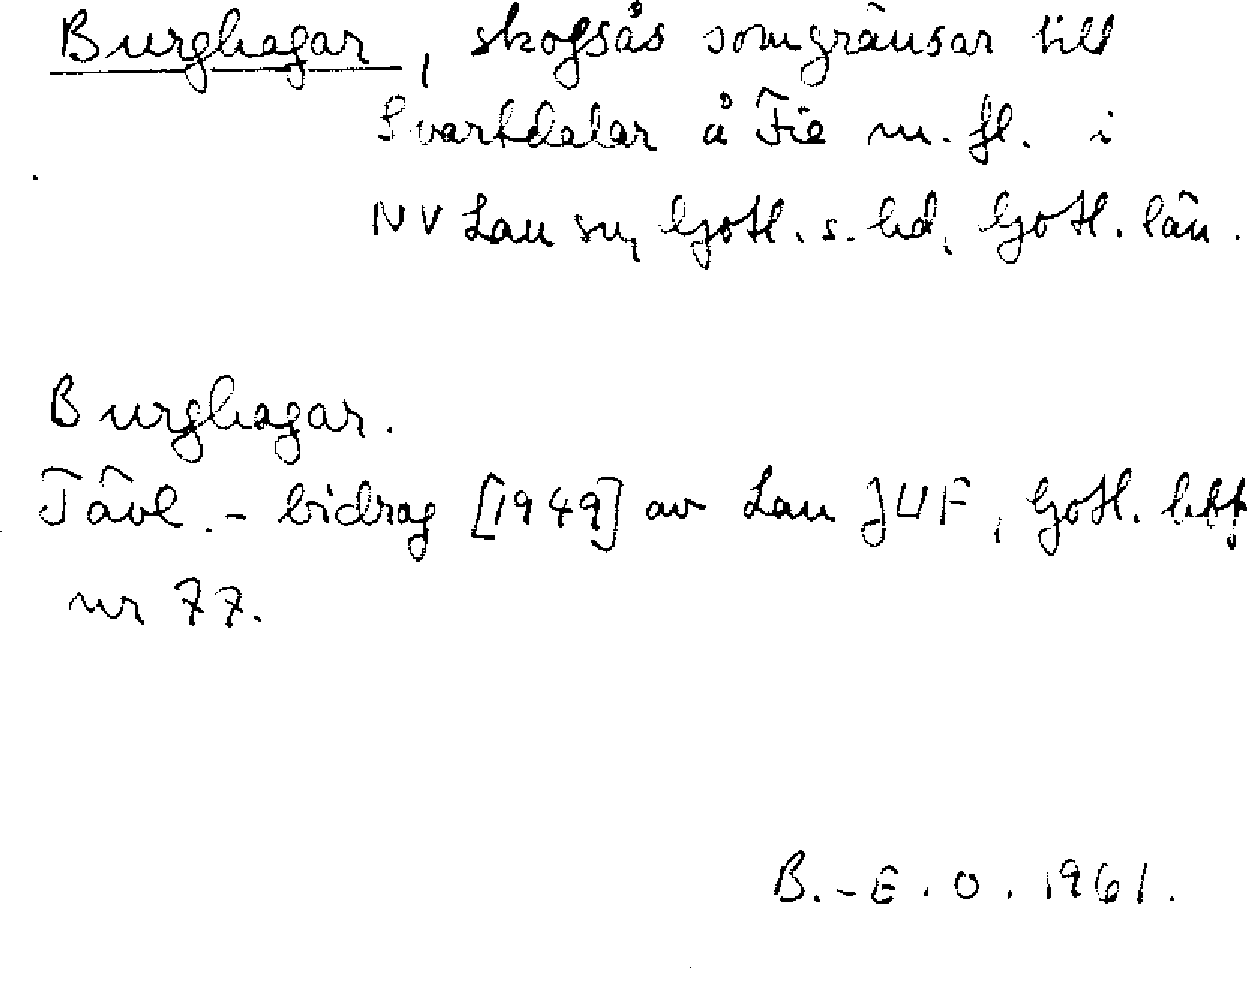 Burghagar, skogsås som gränsar till
Svartdalar å Fie m.fl. i
NV Lau sn, Gotl. s. hd, Gotl. län.
Burghagar.
Tävl.-bidrag [1949] av Lau JUF, Gotl.
nr 77.
B.-E.O. 1961.